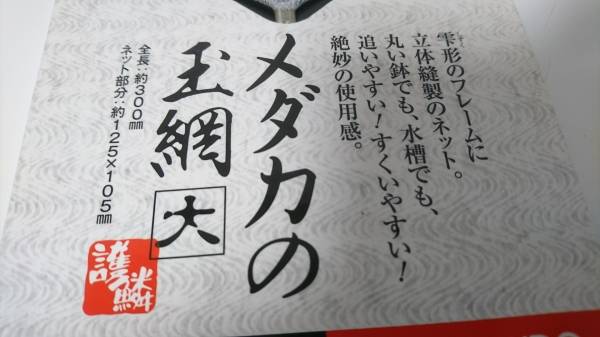 雫形のフレームに
立体縫製のネット。
丸い鉢でも、水槽でも、
追いやすい!すくいやすい!
絶妙の使用感。
メダカの
玉網 大
全長:約300㎜
ネット部分:約125×105㎜
護鱗